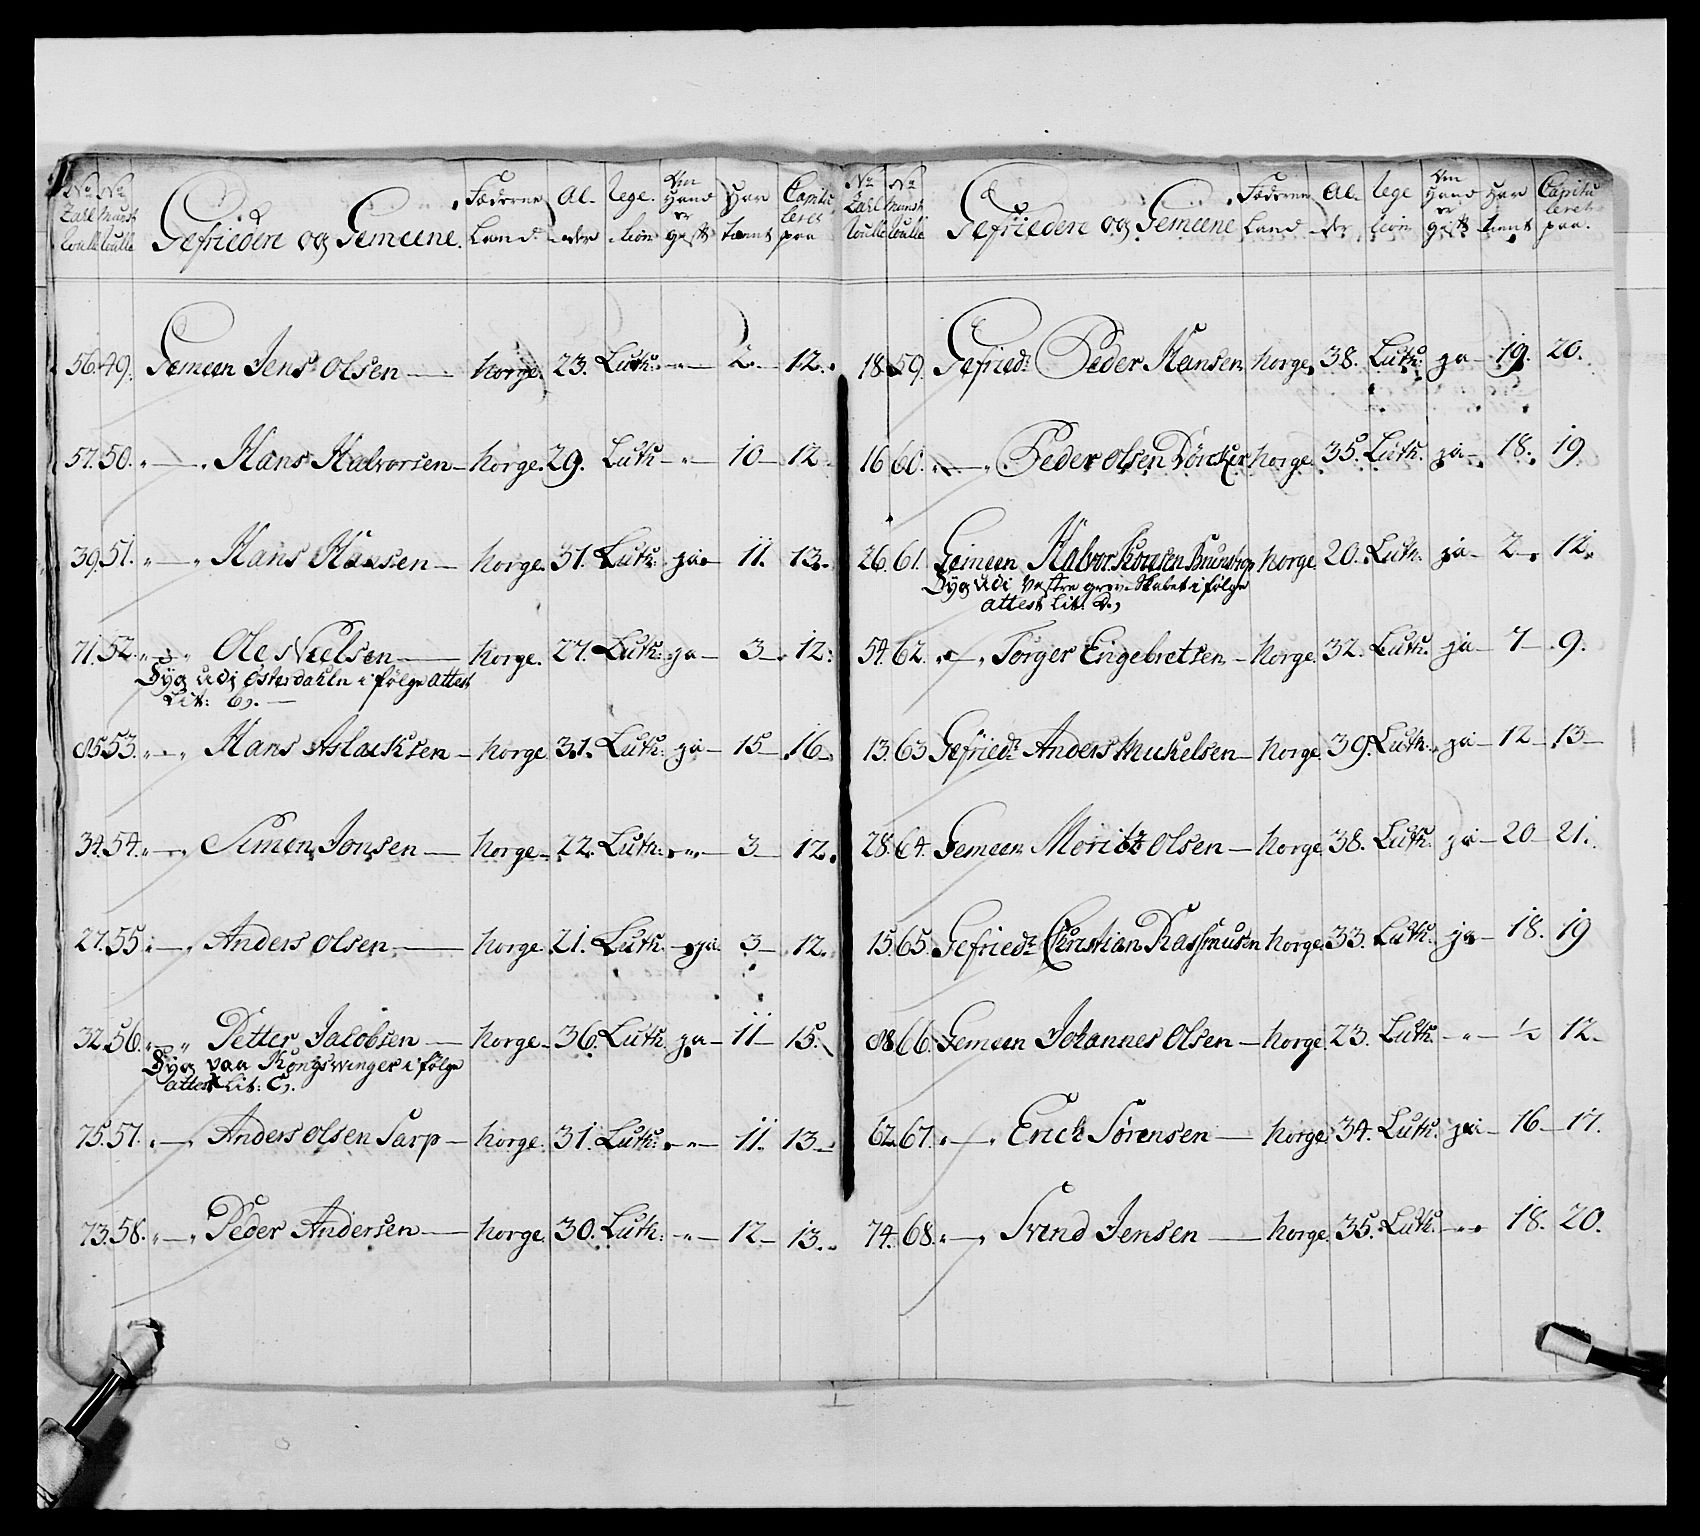 No No Gefriedere og Gemeene. Fæderne Land. Al- der lege- tion Om Hand er gift Har tient Capitu leret paa
56. 49. Gemeen Jens Olsen — Norge. 23. Luth: - " - 2. 12.
57. 50. " — " Hans Halvorsen — Norge. 29. Luth - " - 10 - 12
39. 51. " — " Hans Hansen — Norge. 31. Luth: ja - 11. 13.
71. 52. " — " Ole Nielsen — Norge. 27. Luth: ja - 3 - 12.
Syg udi Østerdahln i følge Attest
Lit: B. —
85. 53. " — " Hans Aslacksen — Norge 31. Luth: ja - 15 - 16 -
34. 54. " — " Simon Jonsen — Norge. 22. Luth: - " - 3 - 12.
27. 55. " — " Anders Olsen — Norge. 21. Luth. - ja 3 - 12.
32. 56. " — " Petter Jacobsen — Norge. 36. Luth. ja - 11 - 15.
Syg paa Kongswinger i følge
attest Lit: C.
75. 57. " — " Anders Olsen Sarp — Norge. 31. Luth: - " - 11. 13 -
73. 58. " — " Peder Andersen — Norge. 30. Luth: - " - 12 - 13.
No No Gefriedere og Gemeene Fæderne Land Al- der lege tion Om Hand er gift Har tient Capitu leret paa.
18. 59. Gefried: Peder Hansen Norge. 38. Luth: ja - 19. 20.
16 60. " — " Peder Olsen Norge. 35. Luth. ja - 18. 19
26. 61. Gemeen Halvor Norge 20. Luth. ja - 2 - 12.
Syg udi Vestre grev Skabet i følge
attest Lit: D.
54. 62. " — " Torger Engebretsen — Norge. 32. Luth: ja - 7 - 9.
13. 63 Gefried: Anders Michelsen — Norge. 39. Luth. ja - 12 - 13 -
28. 64. Gemeen Moritz Olsen — Norge. 38. Luth. ja - 20 - 21.
15. 65. Gefried: Christian Rasmusen Norge. 33. Luth: ja - 18. 19
88. 66. Gemeen Johannes Olsen — Norge 23. Luth: - " - ½ 12 -
62. 67. " — " Erich Sørensen — Norge. 34. Luth. ja - 16 - 17.
74. 68. " — " Svend Jensen — Norge. 35. Luth. - " - 18. 20.